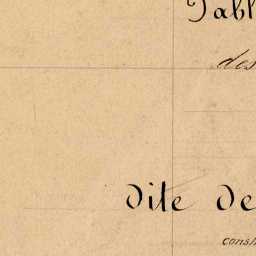 Tabl
des
dite de
const